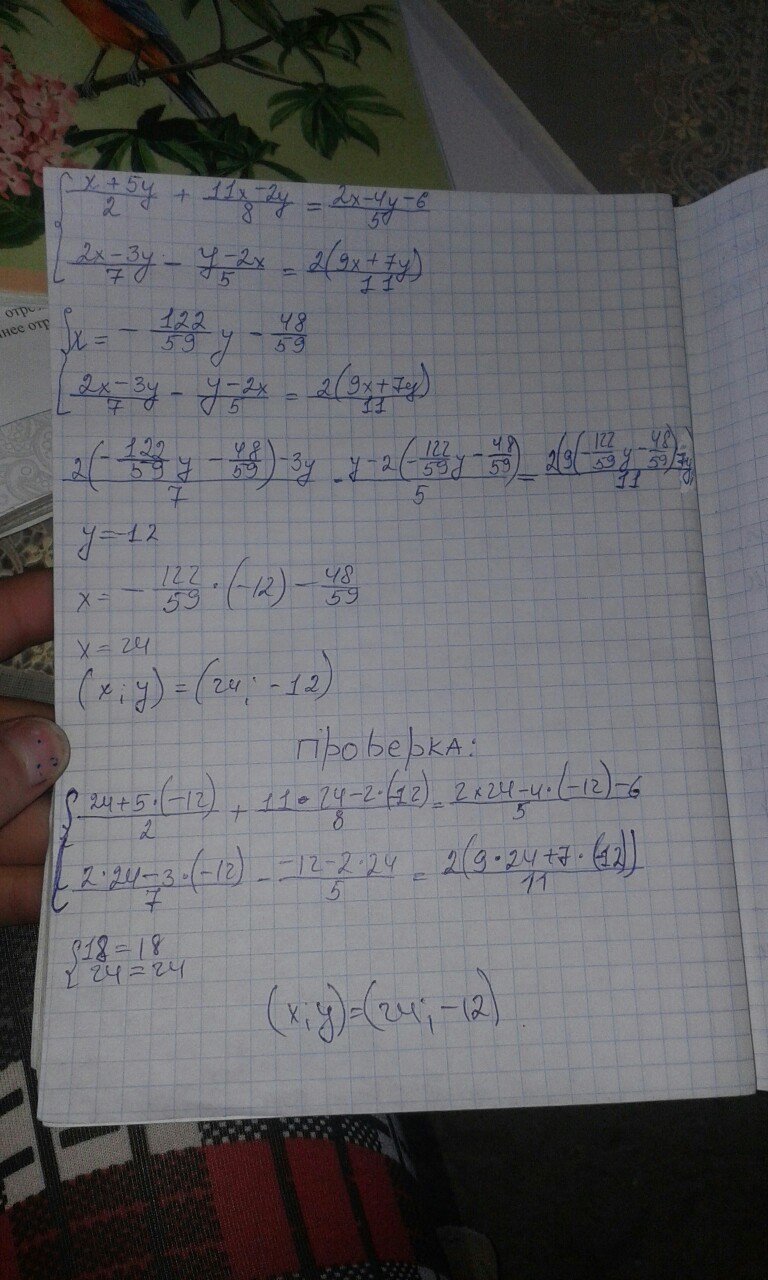 отре
нее отр
{ (x+5y)/2 + (11x-2y)/8 = (2x-4y-6)/5
{ (2x-3y)/7 - (y-2x)/5 = 2(9x+7y)/11
{ x = - 122/59 y - 48/59
{ (2x-3y)/7 - (y-2x)/5 = 2(9x+7y)/11
(2(-122/59 y - 48/59)-3y)/7 - (y-2(-122/59 y - 48/59))/5 = 2(9(-122/59 y - 48/59)+7y)/11
y=-12
x = - 122/59 · (-12) - 48/59
x = 24
(x; y) = (24; -12)
ПРОВЕРКА:
{ (24+5·(-12))/2 + (11·24-2·(-12))/8 = (2×24-4·(-12)-6)/5
{ (2·24-3·(-12))/7 - (-12-2·24)/5 = 2(9·24+7·(-12))/11
{ 18=18
{ 24=24
(x; y)=(24; -12)